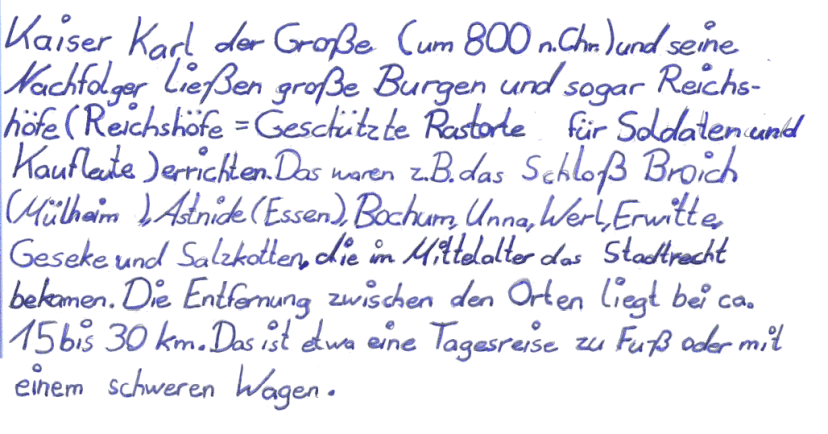 Kaiser Karl der Große (um 800 n.Chr.) und seine
Nachfolger ließen große Burgen und sogar Reichs-
höfe (Reichshöfe = Geschützte Rastorte für Soldaten und
Kaufleute) errichten. Das waren z.B. das Schloß Broich
(Mülheim), Astnide (Essen), Bochum, Unna, Werl, Erwitte,
Geseke und Salzkotten, die im Mittelalter das Stadtrecht
bekamen. Die Entfernung zwischen den Orten liegt bei ca.
15 bis 30 km. Das ist etwa eine Tagesreise zu Fuß oder mit
einem schweren Wagen.